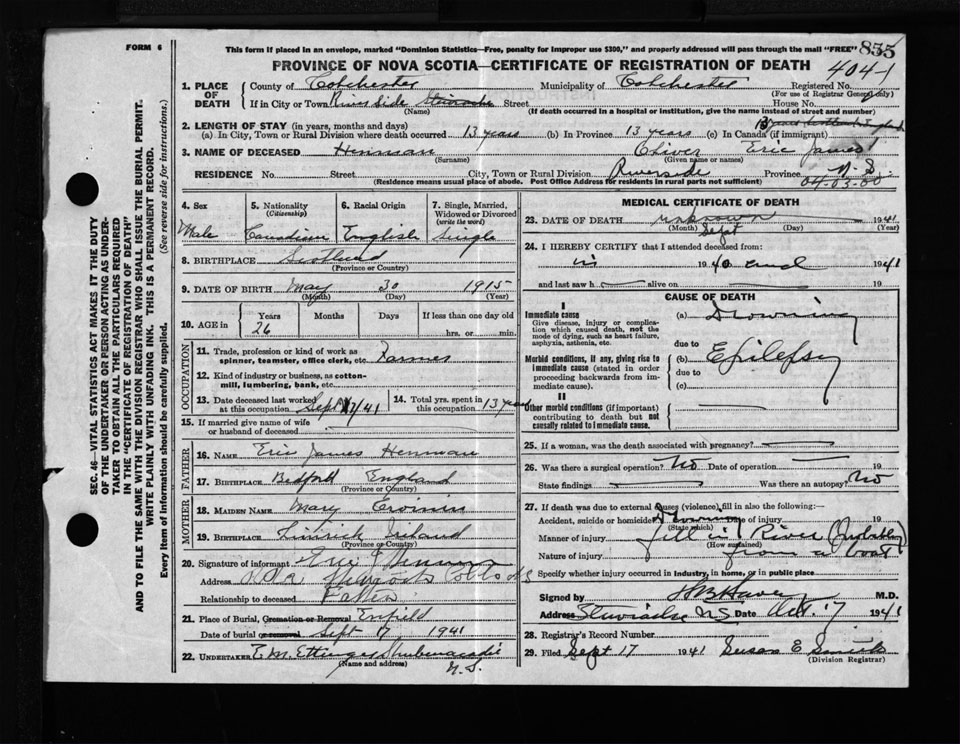 FORM 6
This form if placed in an envelope, marked "Dominion Statistics—Free, penalty for improper use $300," and properly addressed will pass through the mail "FREE" 835
PROVINCE OF NOVA SCOTIA—CERTIFICATE OF REGISTRATION OF DEATH
4041
SEC. 46—VITAL STATISTICS ACT MAKES IT THE DUTY
OF THE UNDERTAKER OR PERSON ACTING AS UNDER-
TAKER TO OBTAIN ALL THE PARTICULARS REQUIRED
IN THE "CERTIFICATE OF REGISTRATION OF DEATH"
AND TO FILE THE SAME WITH THE DIVISION REGISTRAR WHO SHALL ISSUE THE BURIAL PERMIT.
WRITE PLAINLY WITH UNFADING INK. THIS IS A PERMANENT RECORD.
Every item of information should be carefully supplied. (See reverse side for instructions.)
1. PLACE OF DEATH
County of Colchester Municipality of Colchester Registered No.
(For use of Registrar General only)
If in City or Town River Side Street House No.
(Name) (If death occurred in a hospital or institution, give the name instead of street and number)
2. LENGTH OF STAY (in years, months and days)
(a) In City, Town or Rural Division where death occurred 13 years (b) In Province 13 years (c) In Canada (if immigrant)
3. NAME OF DECEASED Henman Oliver Eric James
(Surname) (Given name or names)
RESIDENCE No. Street City, Town or Rural Division Riverside Province N.S.
(Residence means usual place of abode. Post Office Address for residents in rural parts not sufficient) 04.03.00
4. Sex Male
5. Nationality (Citizenship) Canadian
6. Racial Origin English
7. Single, Married, Widowed or Divorced (write the word) Single
8. BIRTHPLACE Scotland
(Province or Country)
9. DATE OF BIRTH May 30 1915
(Month) (Day) (Year)
10. AGE in Years 26 Months Days If less than one day old hrs. or min.
OCCUPATION
11. Trade, profession or kind of work as spinner, teamster, office clerk, etc. Farmer
12. Kind of industry or business, as cotton-mill, lumbering, bank, etc.
13. Date deceased last worked at this occupation Sept /41
14. Total yrs. spent in this occupation 13 years
15. If married give name of wife or husband of deceased
FATHER
16. NAME Eric James Henman
17. BIRTHPLACE Bedford England
(Province or Country)
MOTHER
18. MAIDEN NAME Mary
19. BIRTHPLACE Limrick Ireland
(Province or Country)
20. Signature of informant Eric J Henman
Address
Relationship to deceased Father
21. Place of Burial, Cremation or Removal Enfield
Date of burial or removal Sept 17 1941
22. UNDERTAKER E. M. Ettinger Shubenacadie
(Name and address) N.S.
MEDICAL CERTIFICATE OF DEATH
23. DATE OF DEATH unknown Sept 1941
(Month) (Day) (Year)
24. I HEREBY CERTIFY that I attended deceased from:
in 1940 and 1941
and last saw h alive on 19
CAUSE OF DEATH
I
Immediate cause
Give disease, injury or complication which caused death, not the mode of dying, such as heart failure, asphyxia, asthenia, etc.
(a) Drowning
due to
Morbid conditions, if any, giving rise to immediate cause (stated in order proceeding backwards from immediate cause).
(b) Epilepsy
due to
(c)
II
Other morbid conditions (if important) contributing to death but not causally related to immediate cause.
25. If a woman, was the death associated with pregnancy?
26. Was there a surgical operation? No Date of operation 19
State findings Was there an autopsy? No
27. If death was due to external causes (violence) fill in also the following:—
Accident, suicide or homicide? Drowning Date of injury 19
(State which)
Manner of injury fell in River (Probably
(How sustained)
Nature of injury from a boat)
Specify whether injury occurred in industry, in home, or in public place
Signed by M.D.
Address Stewiacke N.S. Date Oct. 17 1941
28. Registrar's Record Number
29. Filed Sept 17 1941 Susan E Smith
(Division Registrar)